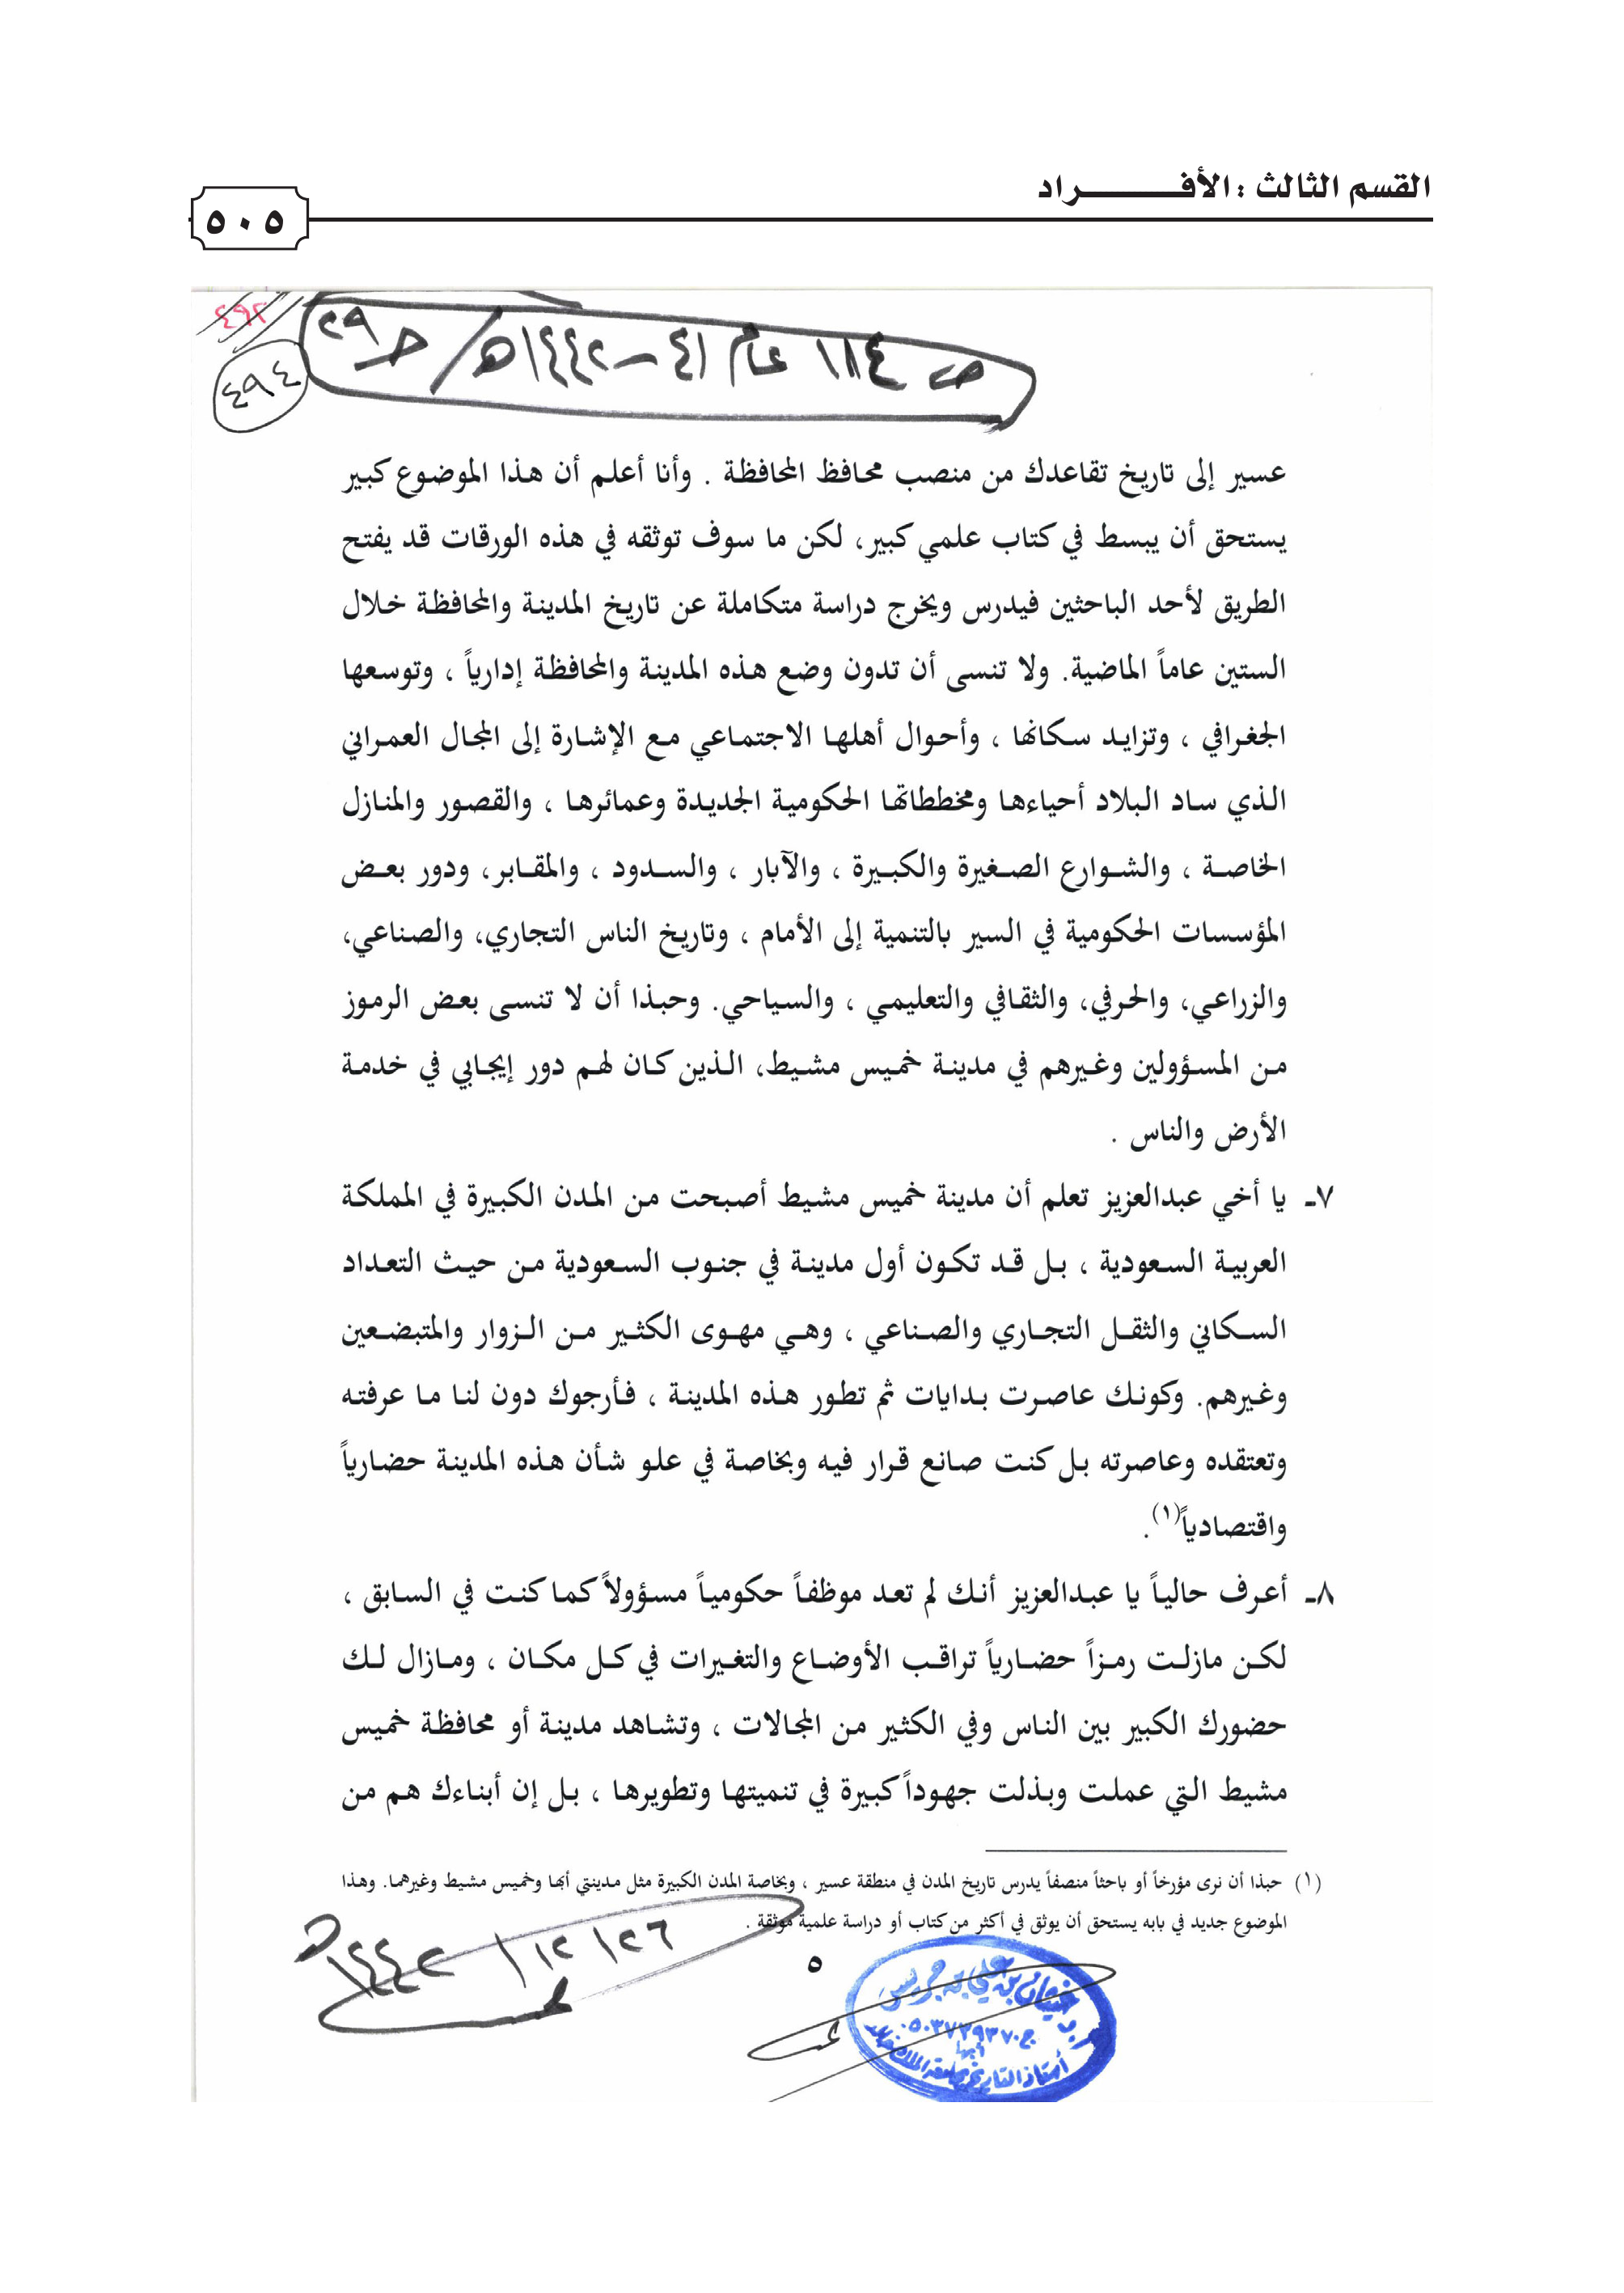 القسم الثالث : الأفـــــــــراد
٥٠٥
٤٩٢
٤٩٤
صـ ١١٨٤ عام ٤١ – ١٤٤٢هـ / جـ ٢٩
عسير إلى تاريخ تقاعدك من منصب محافظ المحافظة . وأنا أعلم أن هذا الموضوع كبير
يستحق أن يبسط في كتاب علمي كبير، لكن ما سوف توثقه في هذه الورقات قد يفتح
الطريق لأحد الباحثين فيدرس ويخرج دراسة متكاملة عن تاريخ المدينة والمحافظة خلال
الستين عاماً الماضية. ولا تنسى أن تدون وضع هذه المدينة والمحافظة إدارياً ، وتوسعها
الجغرافي ، وتزايد سكانها ، وأحوال أهلها الاجتماعي مع الإشارة إلى المجال العمراني
الذي ساد البلاد أحياءها ومخططاتها الحكومية الجديدة وعمائرها ، والقصور والمنازل
الخاصة ، والشوارع الصغيرة والكبيرة ، والآبار ، والسدود ، والمقابر، ودور بعض
المؤسسات الحكومية في السير بالتنمية إلى الأمام ، وتاريخ الناس التجاري، والصناعي،
والزراعي، والحرفي، والثقافي والتعليمي ، والسياحي. وحبذا أن لا تنسى بعض الرموز
من المسؤولين وغيرهم في مدينة خميس مشيط، الذين كان لهم دور إيجابي في خدمة
الأرض والناس .
٧ـ يا أخي عبدالعزيز تعلم أن مدينة خميس مشيط أصبحت من المدن الكبيرة في المملكة
العربية السعودية ، بل قد تكون أول مدينة في جنوب السعودية من حيث التعداد
السكاني والثقل التجاري والصناعي ، وهي مهوى الكثير من الزوار والمتبضعين
وغيرهم. وكونك عاصرت بدايات ثم تطور هذه المدينة ، فأرجوك دون لنا ما عرفته
وتعتقده وعاصرته بل كنت صانع قرار فيه وبخاصة في علو شأن هذه المدينة حضارياً
واقتصادياً(١).
٨ـ أعرف حالياً يا عبدالعزيز أنك لم تعد موظفاً حكومياً مسؤولاً كما كنت في السابق ،
لكن مازلت رمزاً حضارياً تراقب الأوضاع والتغيرات في كل مكان ، ومازال لك
حضورك الكبير بين الناس وفي الكثير من المجالات ، وتشاهد مدينة أو محافظة خميس
مشيط التي عملت وبذلت جهوداً كبيرة في تنميتها وتطويرها ، بل إن أبناءك هم من
(١) حبذا أن نرى مؤرخاً أو باحثاً منصفاً يدرس تاريخ المدن في منطقة عسير ، وبخاصة المدن الكبيرة مثل مدينتي أبها وخميس مشيط وغيرهما. وهذا
الموضوع جديد في بابه يستحق أن يوثق في أكثر من كتاب أو دراسة علمية موثقة .
٢٦ / ١٢ / ١٤٤٢هـ
٥
غيثان بن علي بن جريس
أبها